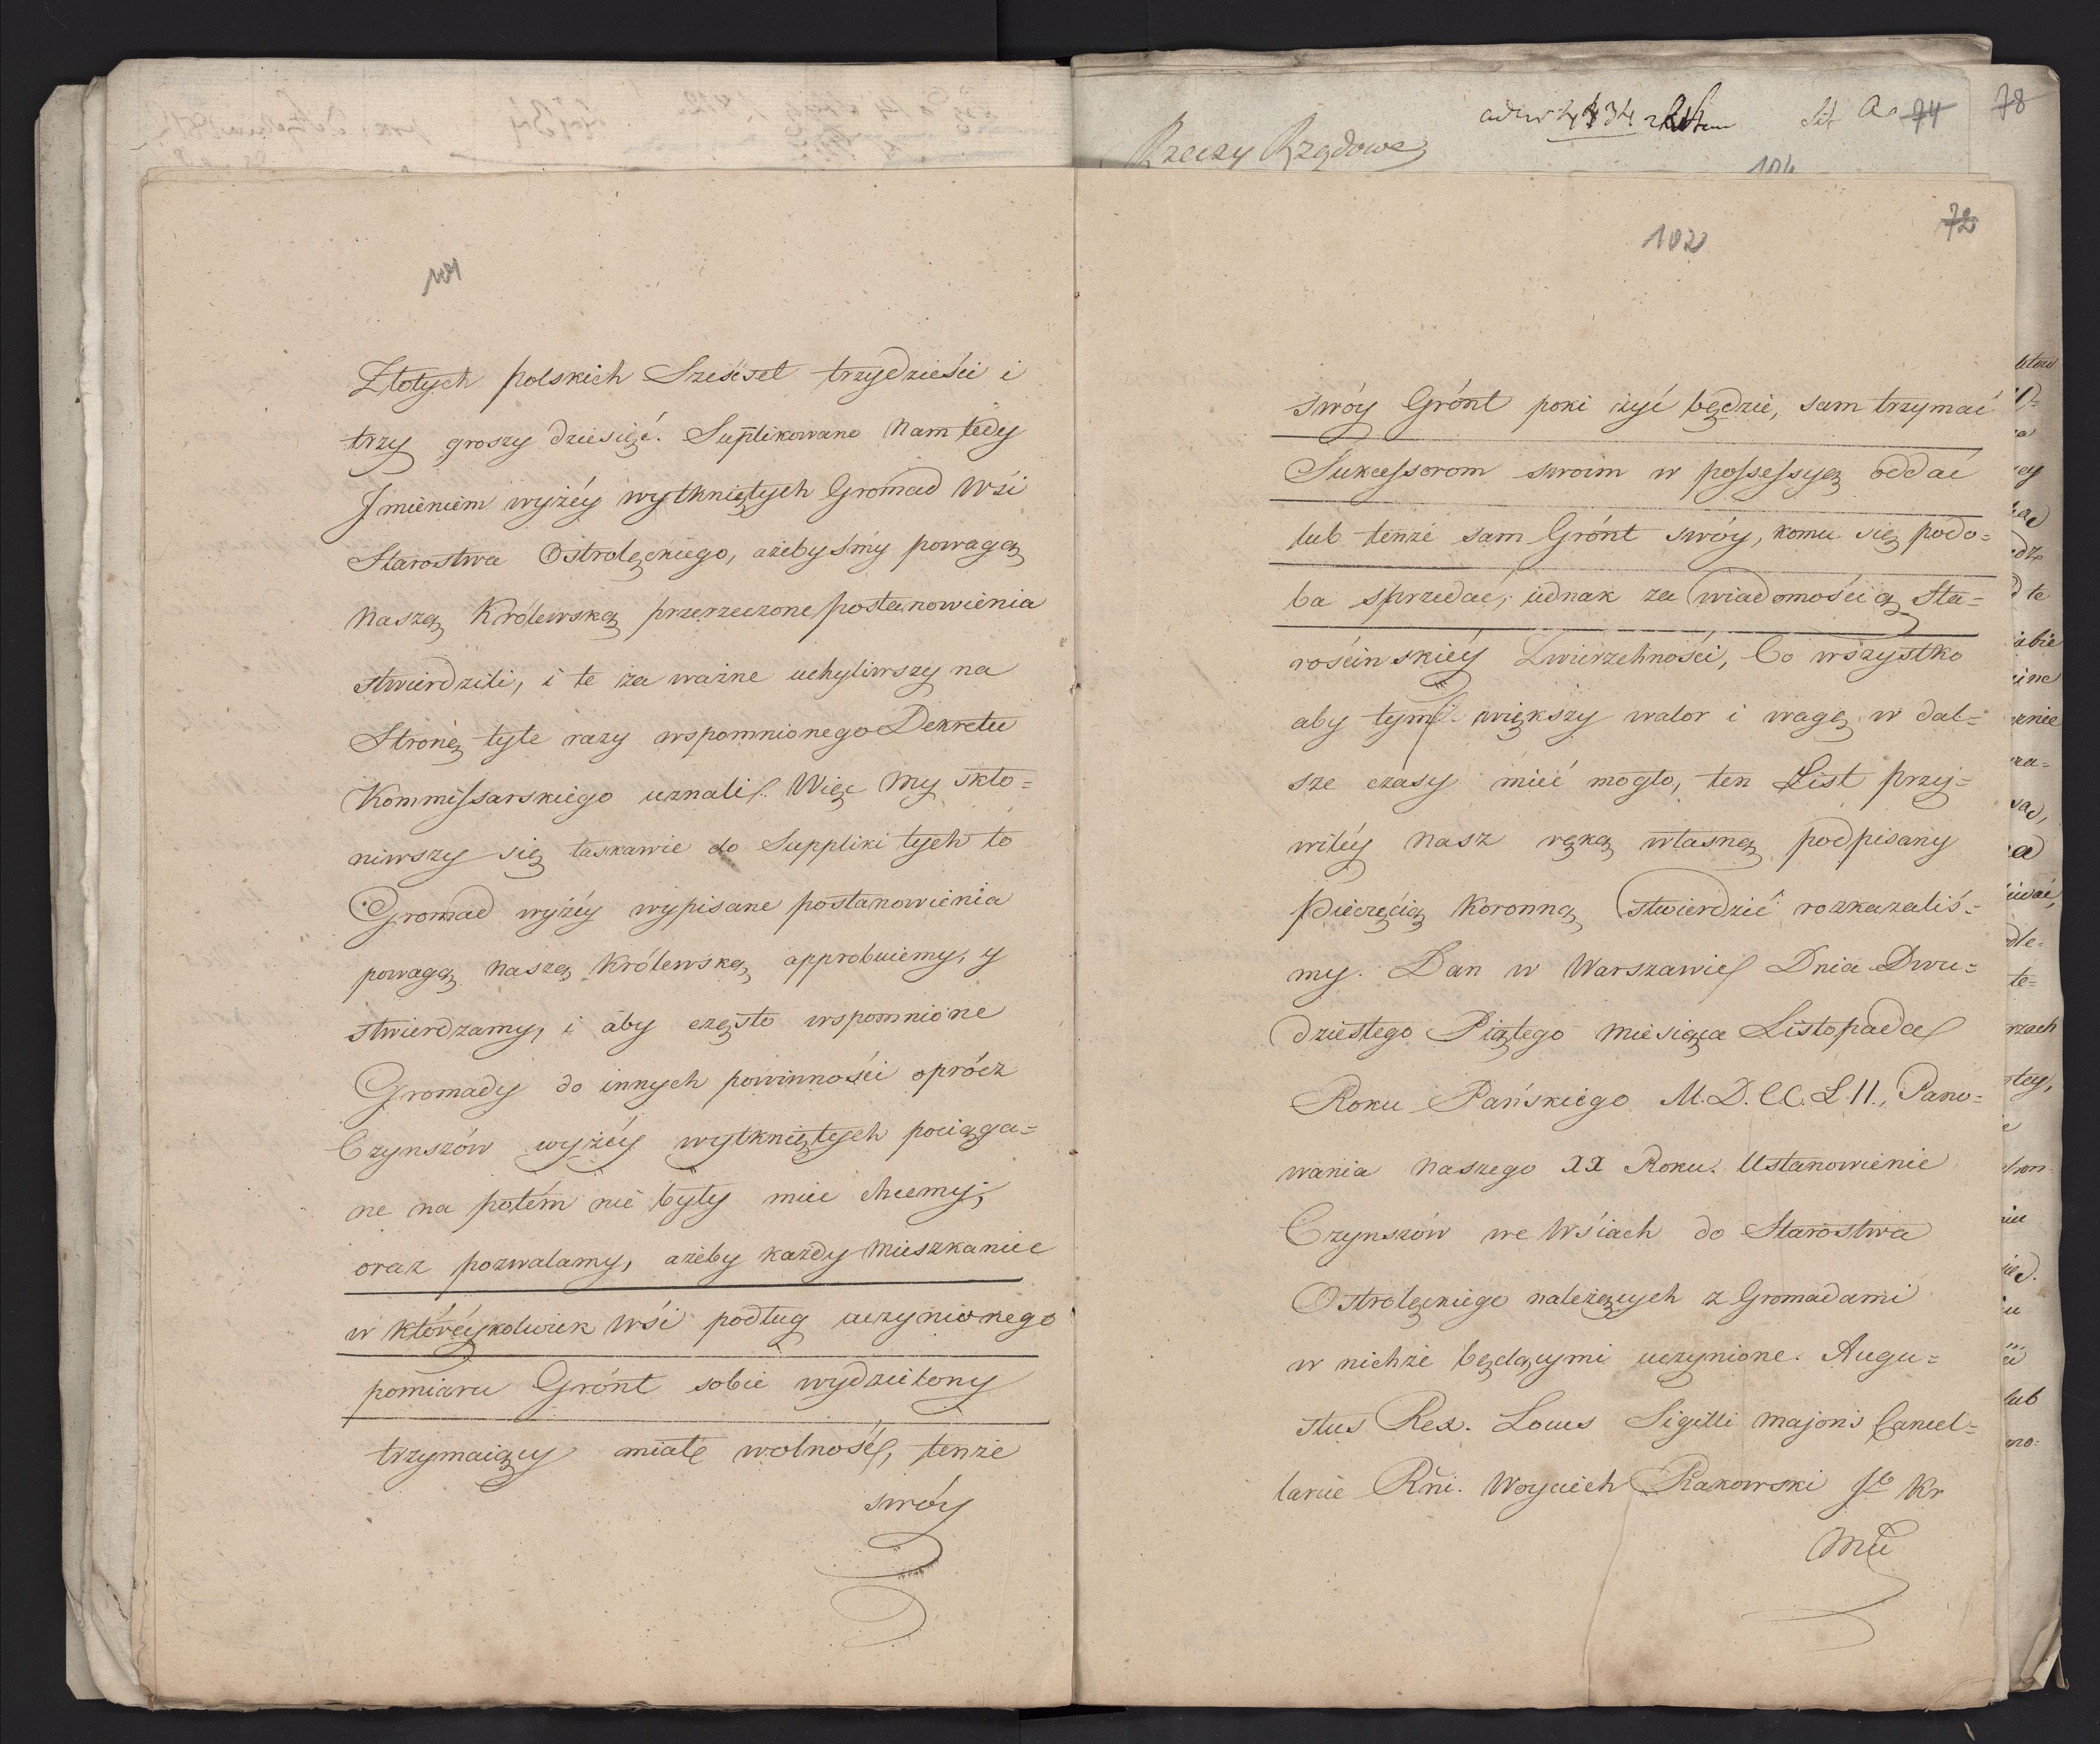 101
Złotych polskich Sześćset trzydzieści i
trzy groszy dziesięć. Suplikowano Nam tedy
Jmieniem wyżéy wytkniętych Gromad Wsi
Starostwa Ostrołęckiego, ażebyśmy powagą
Naszą Królewską przerzeczone postanowienia
stwierdzili, i te za ważne uchyliwszy na
Stronę tyle razy wspomnionego Dekretu
Kommissarskiego uznali. Więc My skło=
niwszy się łaskawie do Suppliki tych to
Gromad wyżéy wypisane postanowienia
powagą Naszą Królewską approbuiemy, y
stwierdzamy, i aby często wspomnione
Gromady do innych powinności oprócz
Czynszów wyżéy wytkniętych pociąga=
ne na potém nie były mieć chcemy;
oraz pozwalamy, ażeby każdy Mieszkaniec
w któréykolwiek Wsi podług uczynionego
pomiaru Grónt sobie wydzielony
trzymaiący miał wolność, tenże
swóy
Rzeczy Rządowe
Lit Aa 74
78
104
102
72
swóy Grónt poki żyć będzie, sam trzymać
Sukcessorom swoim w possessyą oddać
lub tenże sam Grónt swóy, komu się podo=
ba sprzedać, iednak za wiadomością Sta=
rościnskiéy Zwierzchności, Co wszystko
aby tym większy walor i wagę w dal=
sze czasy mieć mogło, ten List przy=
wiléy Nasz ręką własną podpisany
Pieczęcią Koronną stwierdzić rozkazaliś=
my. Dan w Warszawie Dnia Dwu=
dziestego Piątego Miesiąca Listopada
Roku Pańskiego M.D.CC.L.II., Pano=
wania Naszego XX Roku. Ustanowienie
Czynszów we Wsiach do Starostwa
Ostrołęckiego należących z Gromadami
w nichże będącymi uczynione. Augu=
stus Rex. Locus Sigilli Majoris Cancel=
lariæ Rñi. Woyciech Rakowski Kr